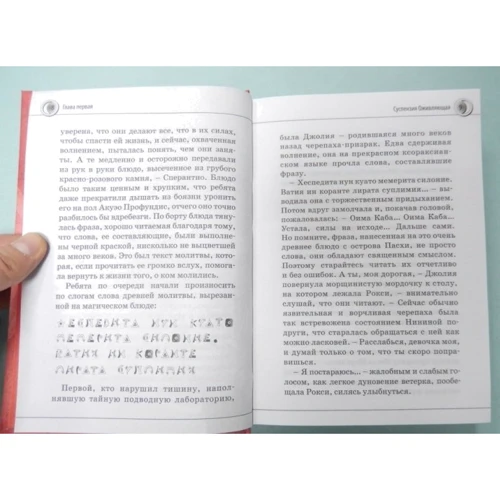 Глава первая
уверена, что они делают все, что в их силах,
чтобы спасти ей жизнь, и сейчас, охваченная
волнением, пыталась понять, чем они заня-
ты. А те медленно и осторожно передавали
из рук в руки блюдо, высеченное из грубого
красно-розового камня, – Сперантио. Блюдо
было таким ценным и хрупким, что ребята
даже прекратили дышать из боязни уронить
его на пол Акуэо Профундис, отчего оно точно
разбилось бы вдребезги. По борту блюда тяну-
лась фраза, хорошо читаемая благодаря тому,
что слова, ее составляющие, были выполне-
ны черной краской, нисколько не выцветшей
за много веков. Это был текст молитвы, кото-
рая, если прочитать ее громко вслух, помога-
ла вернуть к жизни того, о ком молились.
Ребята по очереди начали произносить
по слогам слова древней молитвы, вырезан-
ной на магическом блюде:
ХЕСПЕДИТА НУН КУАТО
МЕМЕРИТА СИЛОНИЕ.
ВАТИЯ НИ КОРАНТЕ
ЛИРАТА СУПЛИМИЯ
Первой, кто нарушил тишину, напол-
нявшую тайную подводную лабораторию,
Суспензия Оживляющая
была Джолия – родившаяся много веков
назад черепаха-призрак. Едва сдерживая
волнение, она на прекрасном ксораксиан-
ском языке прочла слова, составлявшие
фразу.
– Хеспедита нун куато мемерита силоние.
Ватия ни коранте лирата суплимия... – вы-
водила она с торжественным придыханием.
Потом вдруг замолчала и, покачав головой,
пожаловалась: – Оима Каба... Оима Каба...
Устала, силы на исходе... Дальше сами.
Но помните, фраза, нанесенная на это очень
древнее блюдо с острова Пасхи, не просто
слова, они обладают священным смыслом.
Поэтому старайтесь читать их отчетливо
и без ошибок. А ты, моя дорогая, – Джолия
повернула морщинистую мордочку к столу,
на котором лежала Рокси, – внимательно
слушай, что они читают. – Сейчас обычно
язвительная и ворчливая черепаха была
так встревожена состоянием Нининой по-
други, что старалась обращаться с ней как
можно ласковей. – Расслабься, девочка моя,
и думай только о том, что ты скоро попра-
вишься.
– Я постараюсь... – жалобным и слабым го-
лосом, как легкое дуновение ветерка, пообе-
щала Рокси, силясь улыбнуться.